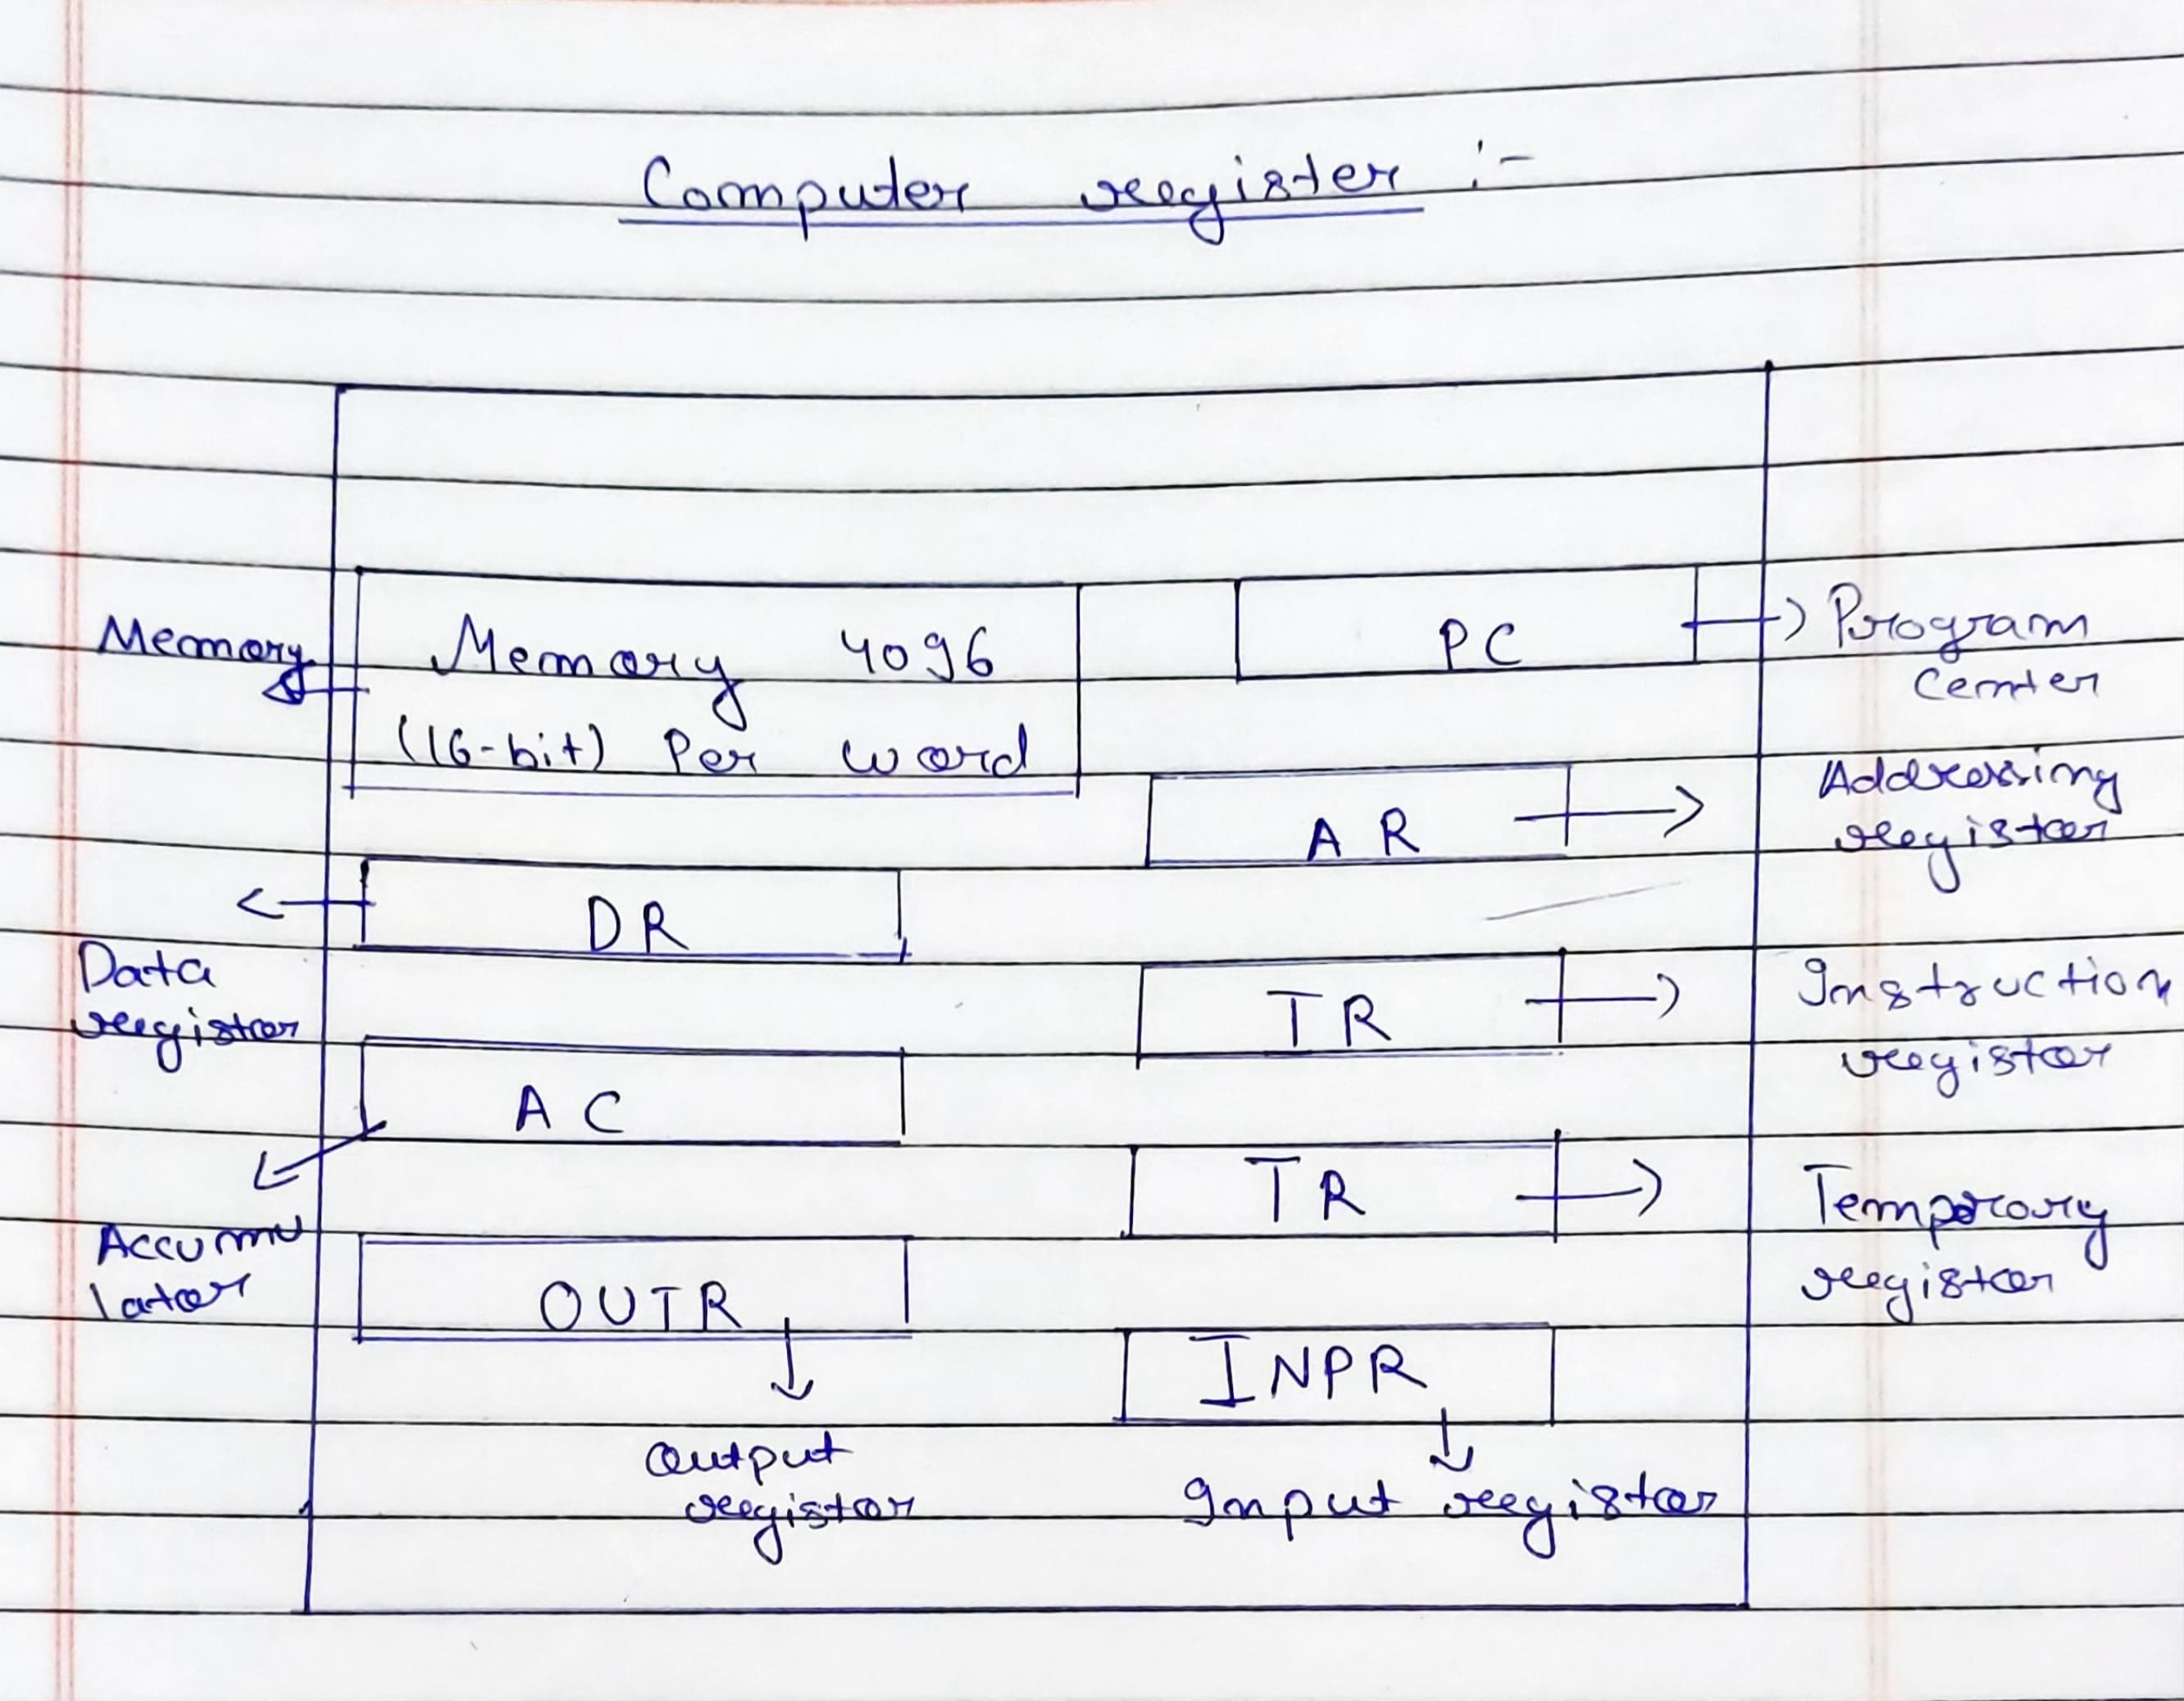 Computer register :-
Memory
Memory 4096
(16-bit) Per word
PC
Program
Center
AR
Addressing
register
DR
Data
register
TR
Instruction
register
AC
Accumu
lator
TR
Temporary
register
OUTR
Output
register
INPR
Input register